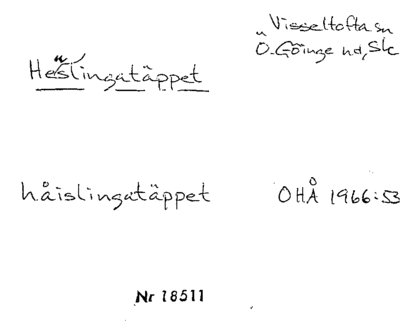 Visseltofta sn
Ö. Göinge hd, Sk
Heslingatäppet
håislingatäppet
OHÅ 1966:53
Nr 18511